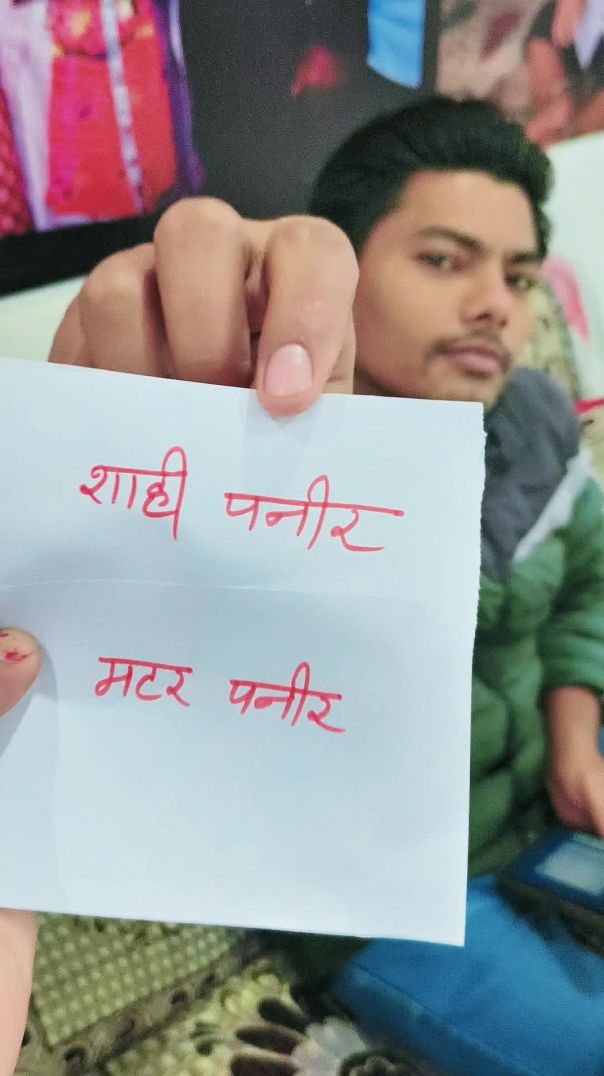 शाही पनीर
मटर पनीर